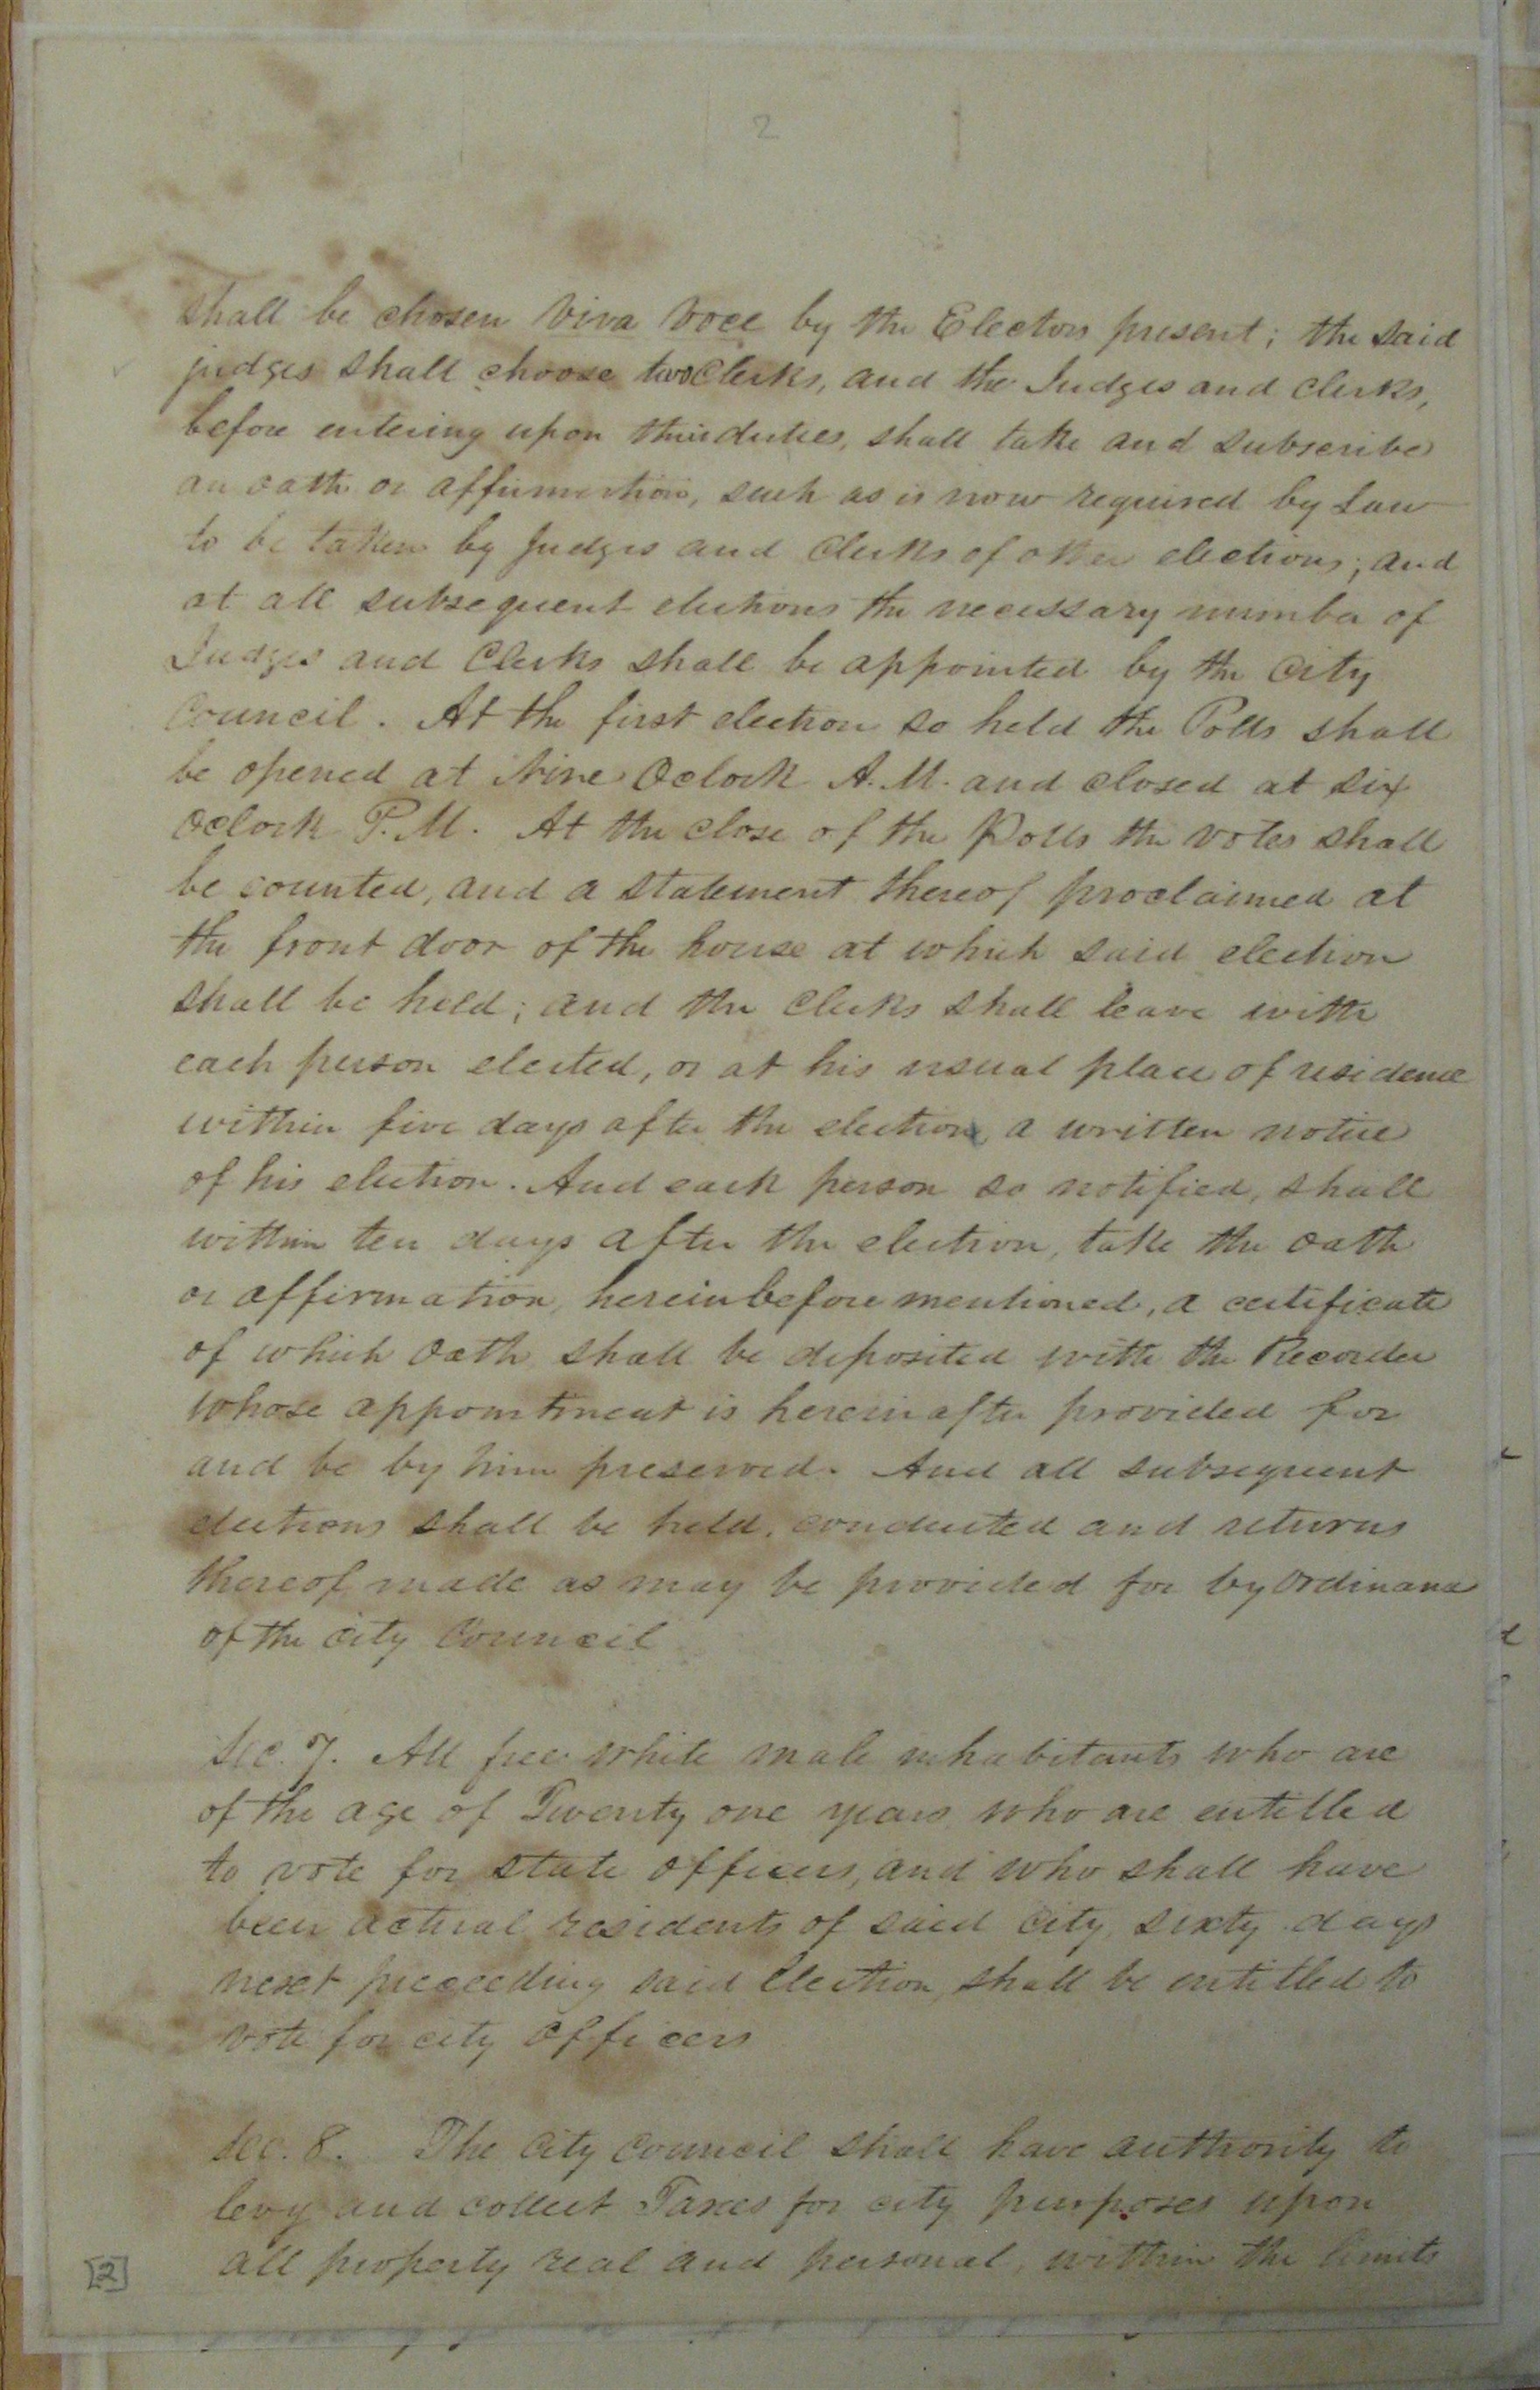 2
shall be chosen Viva Voce by the Electors present; the said
judges shall choose two Clerks, and the Judges and Clerks,
before entering upon their duties, shall take and subscribe
an oath or affirmation, such as is now required by Law
to be taken by Judges and Clerks of other elections; and
at all subsequent elections the necessary number of
Judges and Clerks shall be appointed by the City
Council. At the first election so held the Polls shall
be opened at Nine Oclock A.M. and closed at six
Oclock P.M. At the close of the Polls the votes shall
be counted, and a statement thereof proclaimed at
the front door of the house at which said election
shall be held; and the Clerks shall leave with
each person elected, or at his usual place of residence
within five days after the election, a written notice
of his election. And each person so notified, shall
within ten days after the election, take the oath
or affirmation, hereinbefore mentioned, a certificate
of which Oath shall be deposited with the Recorder
whose appointment is hereinafter provided for
and be by him preserved. And all subsequent
elections shall be held, conducted and returns
thereof made as may be provided for by Ordinance
of the City Council
Sec. 7. All free white male inhabitants who are
of the age of Twenty one years who are entitled
to vote for State officers, and who shall have
been actual residents of said City, sixty days
next preceeding said Election, shall be entitled to
vote for city Officers
Sec. 8. The City Council shall have authority to
levy and collect Taxes for city purposes upon
all property real and personal, within the limits
[2]